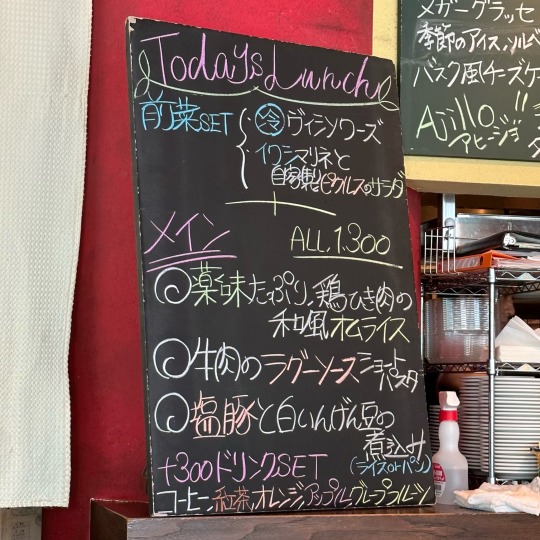 Todays Lunch
前菜SET
冷 ヴィシソワーズ
イワシマリネと
自家製ピクルスのサラダ
+
メイン
ALL 1.300
薬味たっぷり、鶏ひき肉の
和風オムライス
牛肉のラグーソースショート
パスタ
塩豚と白いんげん豆の
煮込み
(ライスorパン)
+300ドリンクSET
コーヒー,紅茶,オレンジ,アップル,グレープフルーツ
メガーグラッセ
季節のアイス,ソルベ
バスク風チーズケ
Ajillo!!
アヒージョ